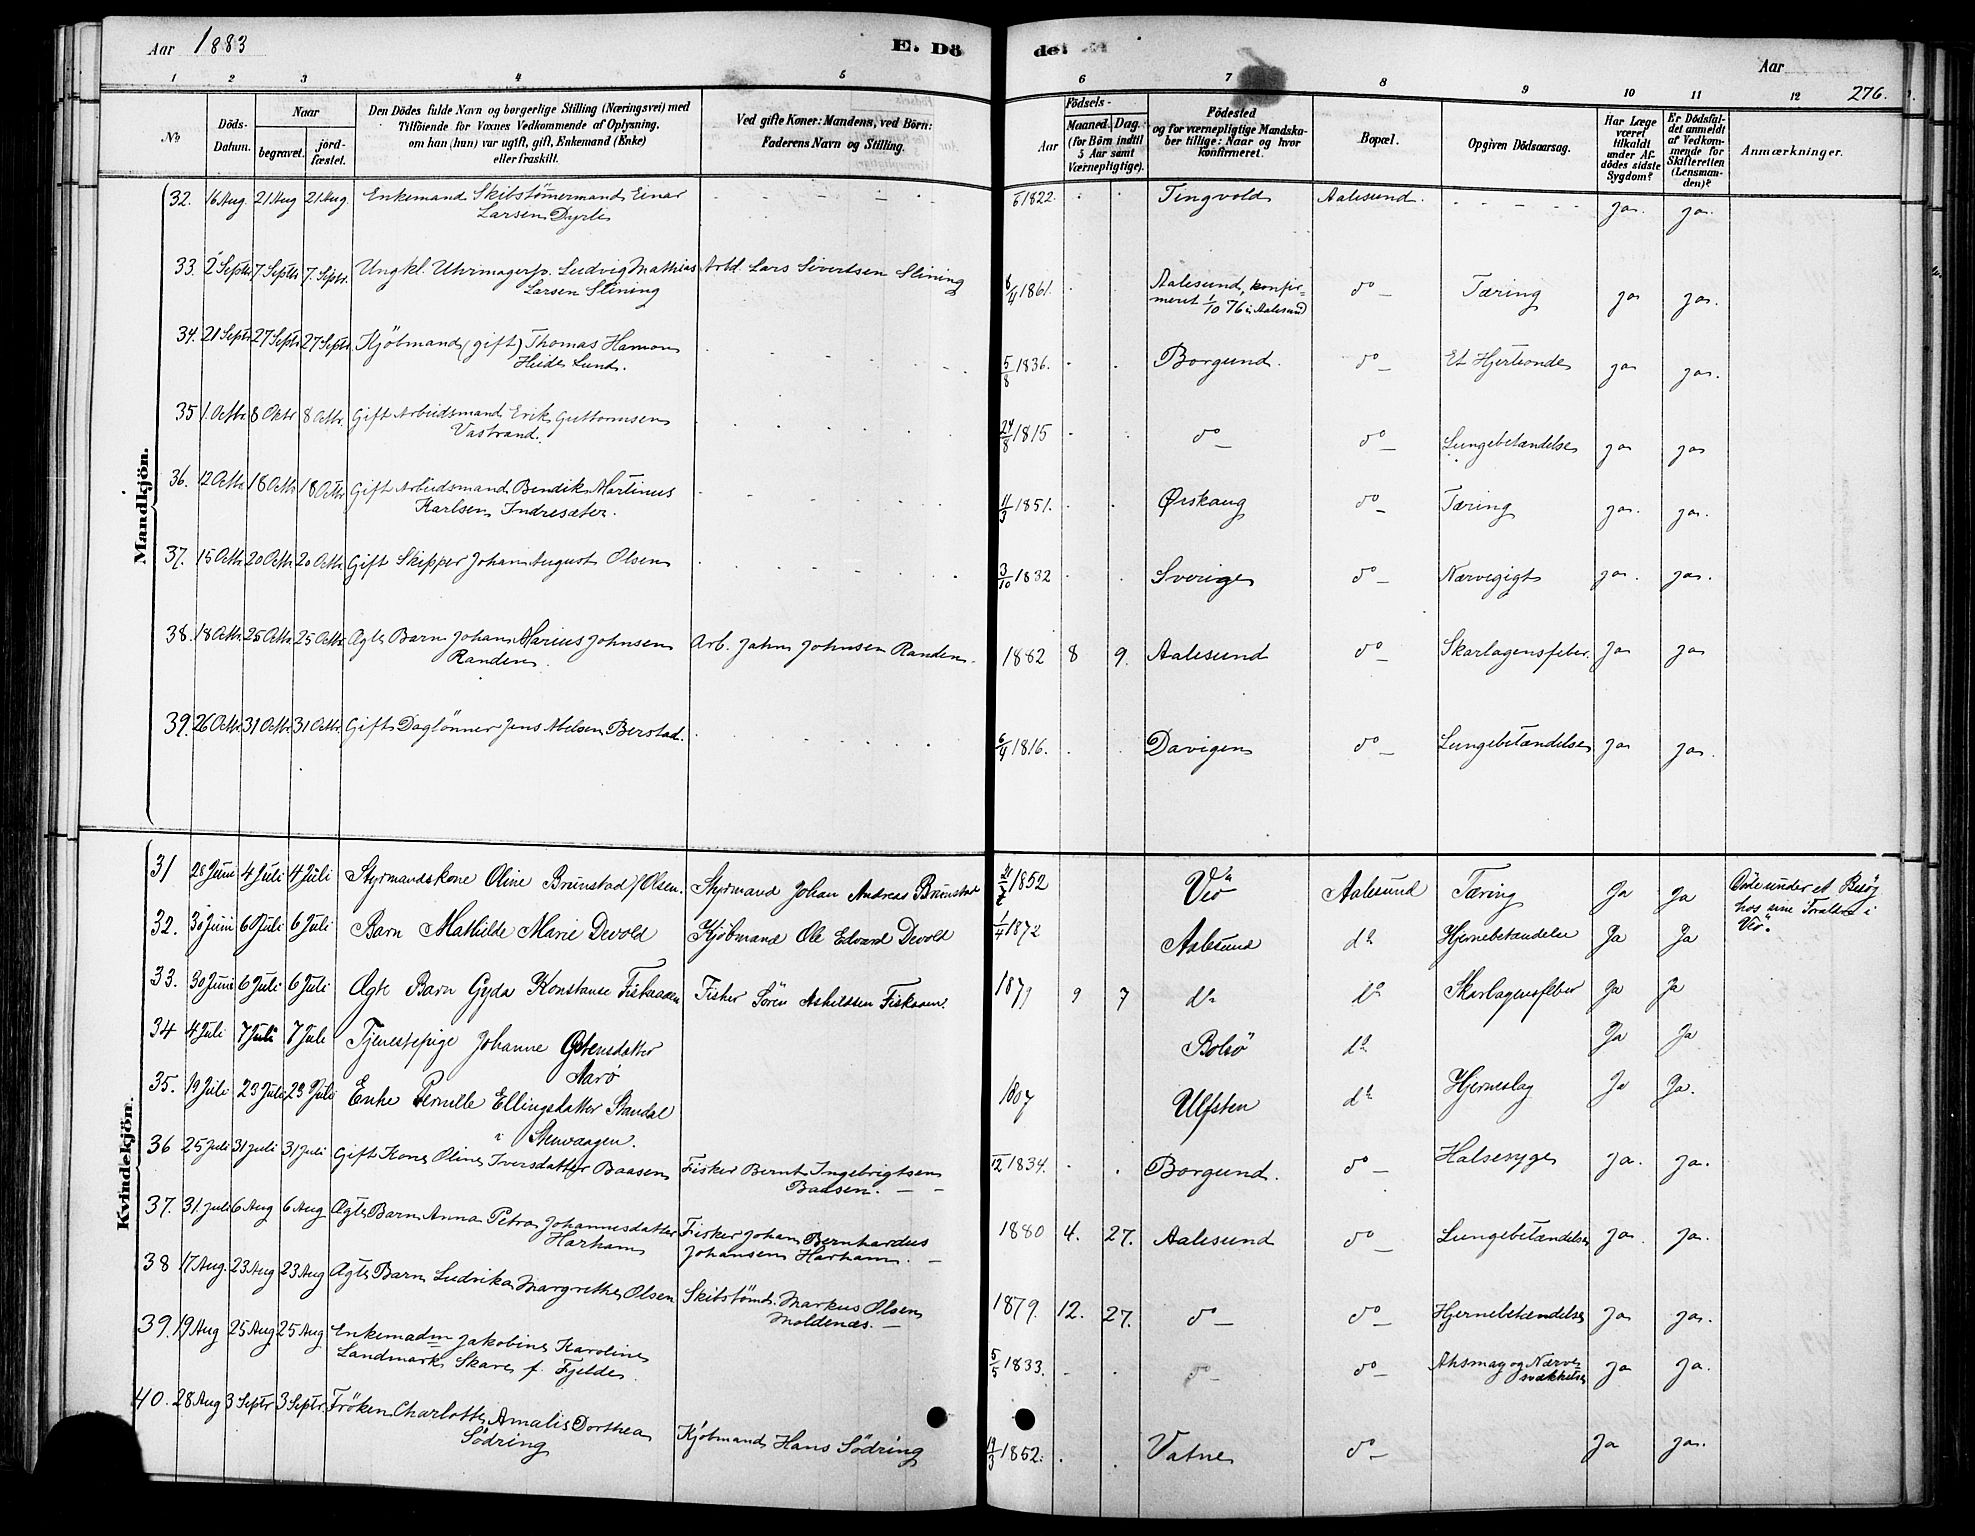 Aar 1883
E. Dö
de
Aar
276.
1 2 3 4 5 6 7 8 9 10 11 12
No
Döds-
Datum.
Naar
begravet.
jord-
fæstet.
Den Dödes fulde Navn og borgerlige Stilling (Næringsvei) med
Tilföiende for Voxnes Vedkommende af Oplysning,
om han (hun) var ugift, gift, Enkemand (Enke)
eller fraskilt.
Ved gifte Koner: Mandens, ved Börn:
Faderens Navn og Stilling.
Födsels-
Aar
Maaned. Dag.
(for Börn indtil
5 Aar samt
Værnepligtige).
Födested
og for værnepligtige Mandska-
ber tillige: Naar og hvor
konfirmeret.
Bopæl.
Opgiven Dödsaarsag.
Har Læge
været
tilkaldt
under Af-
dödes sidste
Sygdom?
Er Dödsfal-
det anmeldt
af Vedkom-
mende for
Skifteretten
(Lensman-
den)?
Anmærkninger.
Mandkjön.
32. 16 Aug. 21 Aug 21 Aug. Enkemand Skibstömermand Einar 1822. Tingvold Aalesund. ja. ja.
Larsen Dyrli
33. 2 Septr 7 Septbr 7. Septr. Ungkl. Uhrmagersv. Ludvig Mathias Arbd. Lars Sivertsen Slining 6/4 1861. Aalesund, konfir- do Tæring ja ja.
Larsen Slining meret 1/10 76 i Aalesund
34. 21 Septr 27 Septr 27 Septr. Kjöbmand (gift) Thomas Hamon 5/8 1836. Borgund. do Et Hjerteonde ja ja.
Heide Lund.
35 1. Octbr 8 Octbr 8 Octbr. Gift Arbeidsmand Erik Guttormsen 24/8 1815 do do Lungebetændelse ja ja
Vastrand.
36. 12 Octbr 18 Octbr 18 Octbr Gift Arbeidsmand Bendik Martinus 11/3 1851. Ørskaug do Tæring ja. ja.
Karlsen Indresæter.
37. 15 Octbr 20 Octbr 20 Octbr Gift Skipper Johan August Olsen 3/10 1832 Sverige do Nærvegigt ja. ja.
38. 18 Octbr. 25 Octbr 25 Octbr. Ægte Barn Johan Marius Johnsen Arb. Jahn Johnsen Randen. 1882 8 9. Aalesund do Skarlagensfeber ja ja
Randen.
39. 26 Octbr 31 Octbr. 31 Octbr. Gift Daglönner Jens Abelsen Berstad. 6/4 1816. Davigen do Lungebetændelse ja ja.
Kvindekjön.
31 28 Juni 4 Juli 4 Juli Styrmandskone Oline Brunstad f Olsen. Styrmand Johan Andreas Brunstad 1852 Veö Aalesund Tæring Ja Ja Döde under et Besög
hos sine Forældre i
Veö.
32. 30 Juni 6 Juli 6 Juli Barn Mathilde Marie Devold Kjöbmand Ole Edvard Devold 1/4 1872 Aalesund do Hjernebetændelse Ja Ja
33. 30 Juni 6 Juli 6 Juli Ægte Barn Gyda Konstanse Fiskaaen Fisker Sören Askildsen Fiskaaen. 1879 9 7 do do Skarlagensfeber Ja Ja
34 4 Juli 7 Juli 7 Juli Tjenestepige Johanne Ostensdatter Bolsö do Ja Ja
Aarö
35. 19 Juli 23 Juli 23 Juli Enke Pernille Ellingsdatter Standal 1807 Ulfsten do Hjerneslag Ja Ja.
i Stenvaagen.
36 25 Juli 31 Juli 31 Juli Gift Kone Oline Iversdatter Baasen Fisker Bernt Ingebrigtsen 1834. Borgund. do Halsesyge ja. ja.
Baasen.
37. 31. juli 6 Aug 6 Aug Ægte Barn Anna Petra Johannesdatter Fisker Johan Bernhardus 1880 4. 27. Aalesund do Lungebetændelse ja. ja.
Harham Johansen Harham.
38 17 Aug. 23 Aug 23 Aug Ægte Barn Ludvika Margrethe Olsen Skibstömd. Markus Olsen 1879. 12. 27. do do Hjernebetændelse ja ja.
Moldenæs.
39. 19 Aug 25 Aug 25 Aug Enkemadm Jakobine Karoline 5/5 1833. do do Ahsma og Nærve- ja ja.
Landmark Skare f. Fjelde. svækkelse
40. 28 Aug 3 Septr 3 Septr. Fröken Charlotte Amalie Dorthea Kjöbmand Hans Södring 19/3 1852. Vatne do ja ja.
Södring